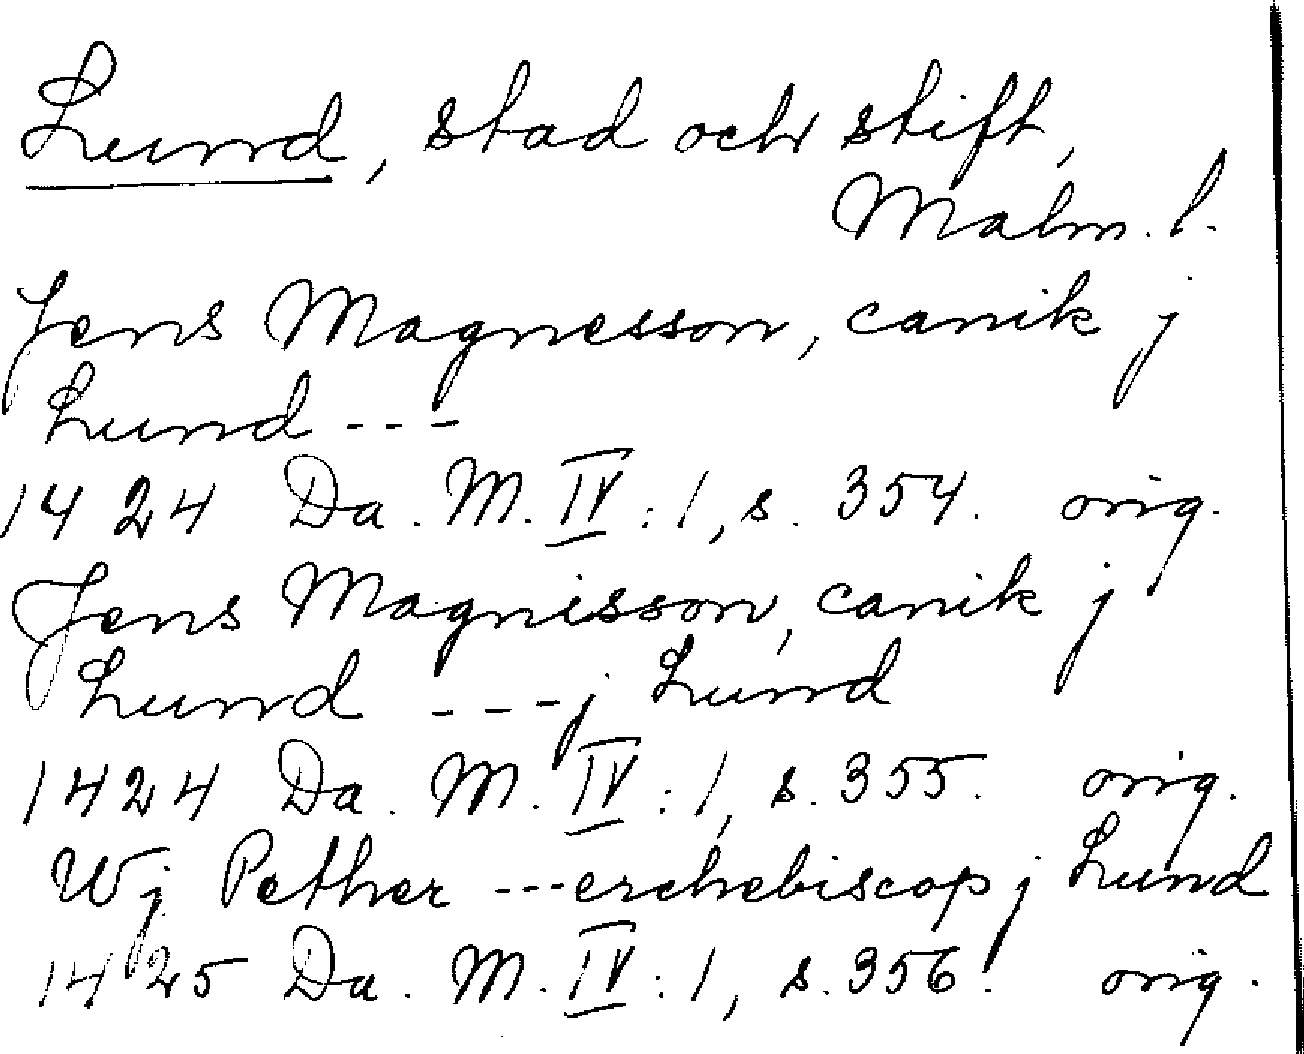 Lund, stad och stift,
Malm. l.
Jens Magnesson, canik j
Lund ---
1424 Da. M. IV : 1, s. 354. orig.
Jens Magnisson, canik j
Lund --- j Lund
1424 Da. M. IV : 1, s. 355. orig.
Wj Pether --- erchebiscop j Lund
1425 Da. M. IV : 1, s. 356. orig.